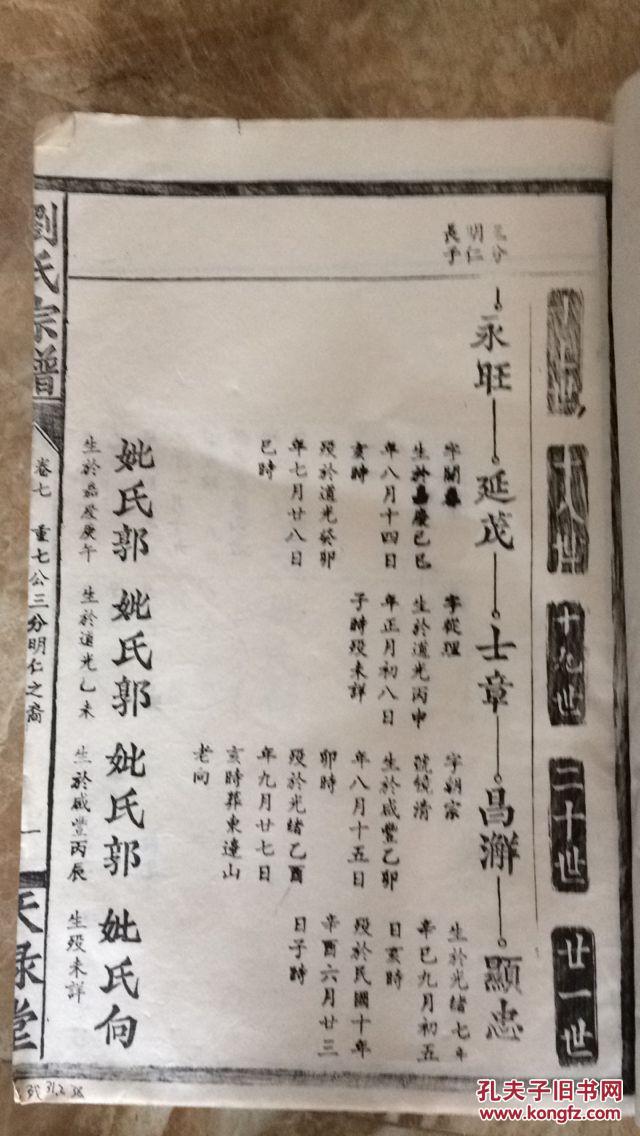 十八世
十九世
二十世
廿一世
三分
明仁
長子
永旺
延茂
士章
昌澥
顯忠
字開
生於嘉慶己巳
年八月十四日
亥時
殁於道光癸卯
年七月廿八日
巳時
妣氏郭
生於嘉慶庚午
字從理
生於道光丙申
年正月初八日
子時殁未詳
妣氏郭
生於道光乙未
字朝宗
號鏡清
生於咸豐乙卯
年八月十五日
卯時
殁於光緒乙酉
年九月廿七日
亥時葬東邊山
老向
妣氏郭
生於咸豐丙辰
生於光緒七年
辛巳九月初五
日亥時
殁於民國十年
辛酉六月廿三
日子時
妣氏向
生殁未詳
劉氏宗譜
卷七 重七公三分明仁之裔
一
天祿堂
孔夫子旧书网
www.kongfz.com